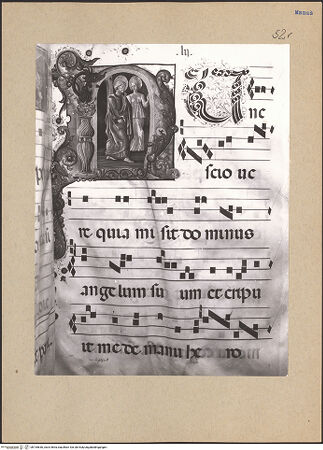 52r
nc
scio ue
re quia mi sit do minus
angelum su um et eripu
it me de manu he ro